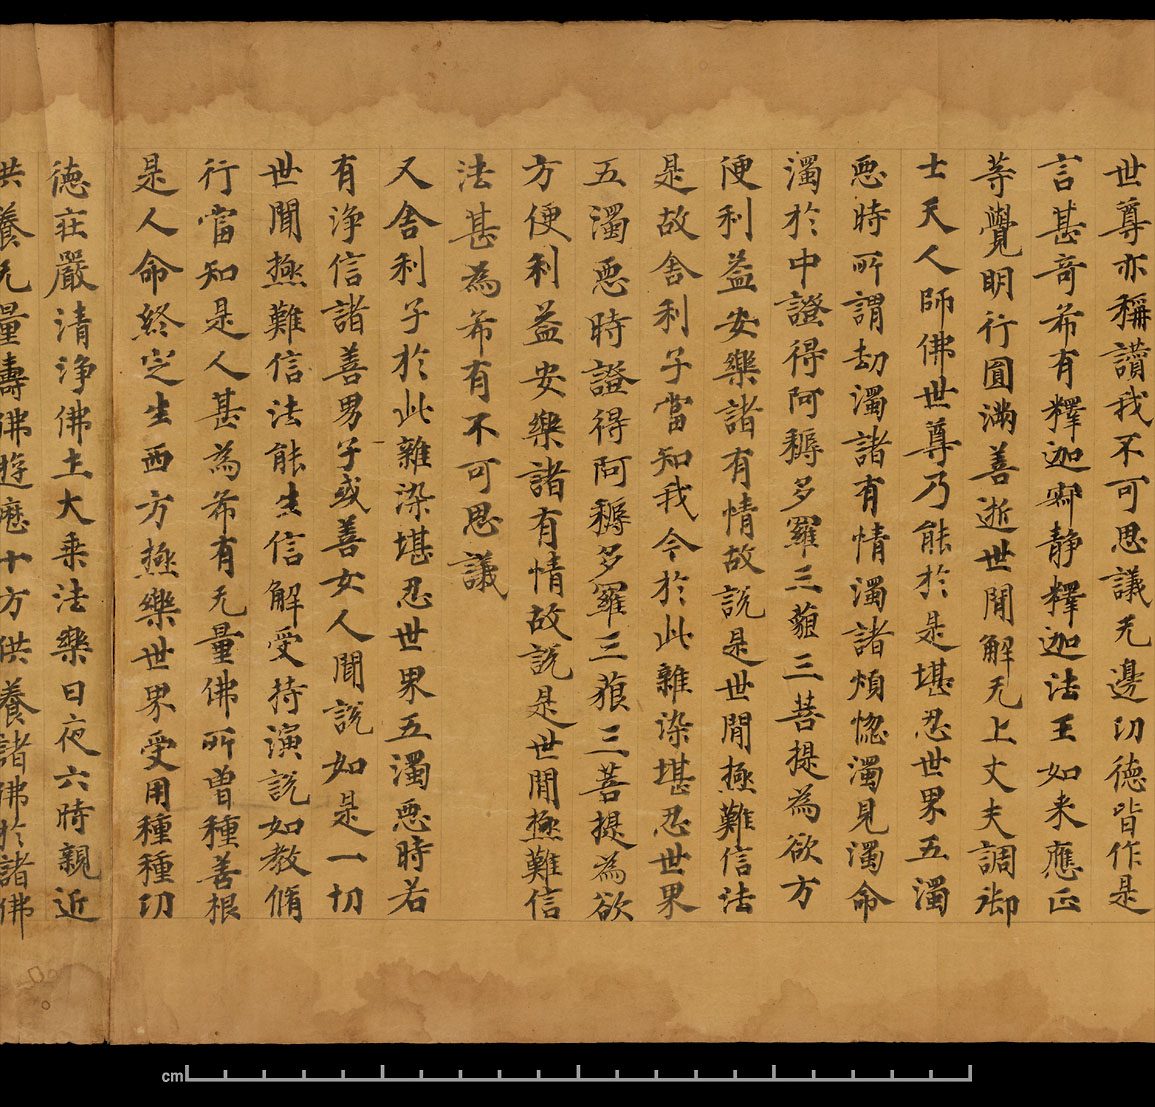 世尊亦稱讚我不可思議无邊功德皆作是
言甚奇希有釋迦寂静釋迦法王如来應正
等覺明行圓滿善逝世間解无上丈夫調御
士天人師佛世尊乃能於是堪忍世界五濁
惡時所謂劫濁諸有情濁諸煩惱濁見濁命
濁於中證得阿耨多羅三藐三菩提為欲方
便利益安樂諸有情故說是世間極難信法
是故舍利子當知我今於此雜染堪忍世界
五濁惡時證得阿耨多羅三藐三菩提為欲
方便利益安樂諸有情故說是世間極難信
法甚為希有不可思議
又舍利子於此雜染堪忍世界五濁惡時若
有淨信諸善男子或善女人聞說如是一切
世間極難信法能生信解受持演說如教脩
行當知是人甚為希有无量佛所曾種善根
是人命終定生西方極樂世界受用種種功
德莊嚴清淨佛土大乘法樂日夜六時親近
供養无量壽佛遊歷十方供養諸佛於諸佛